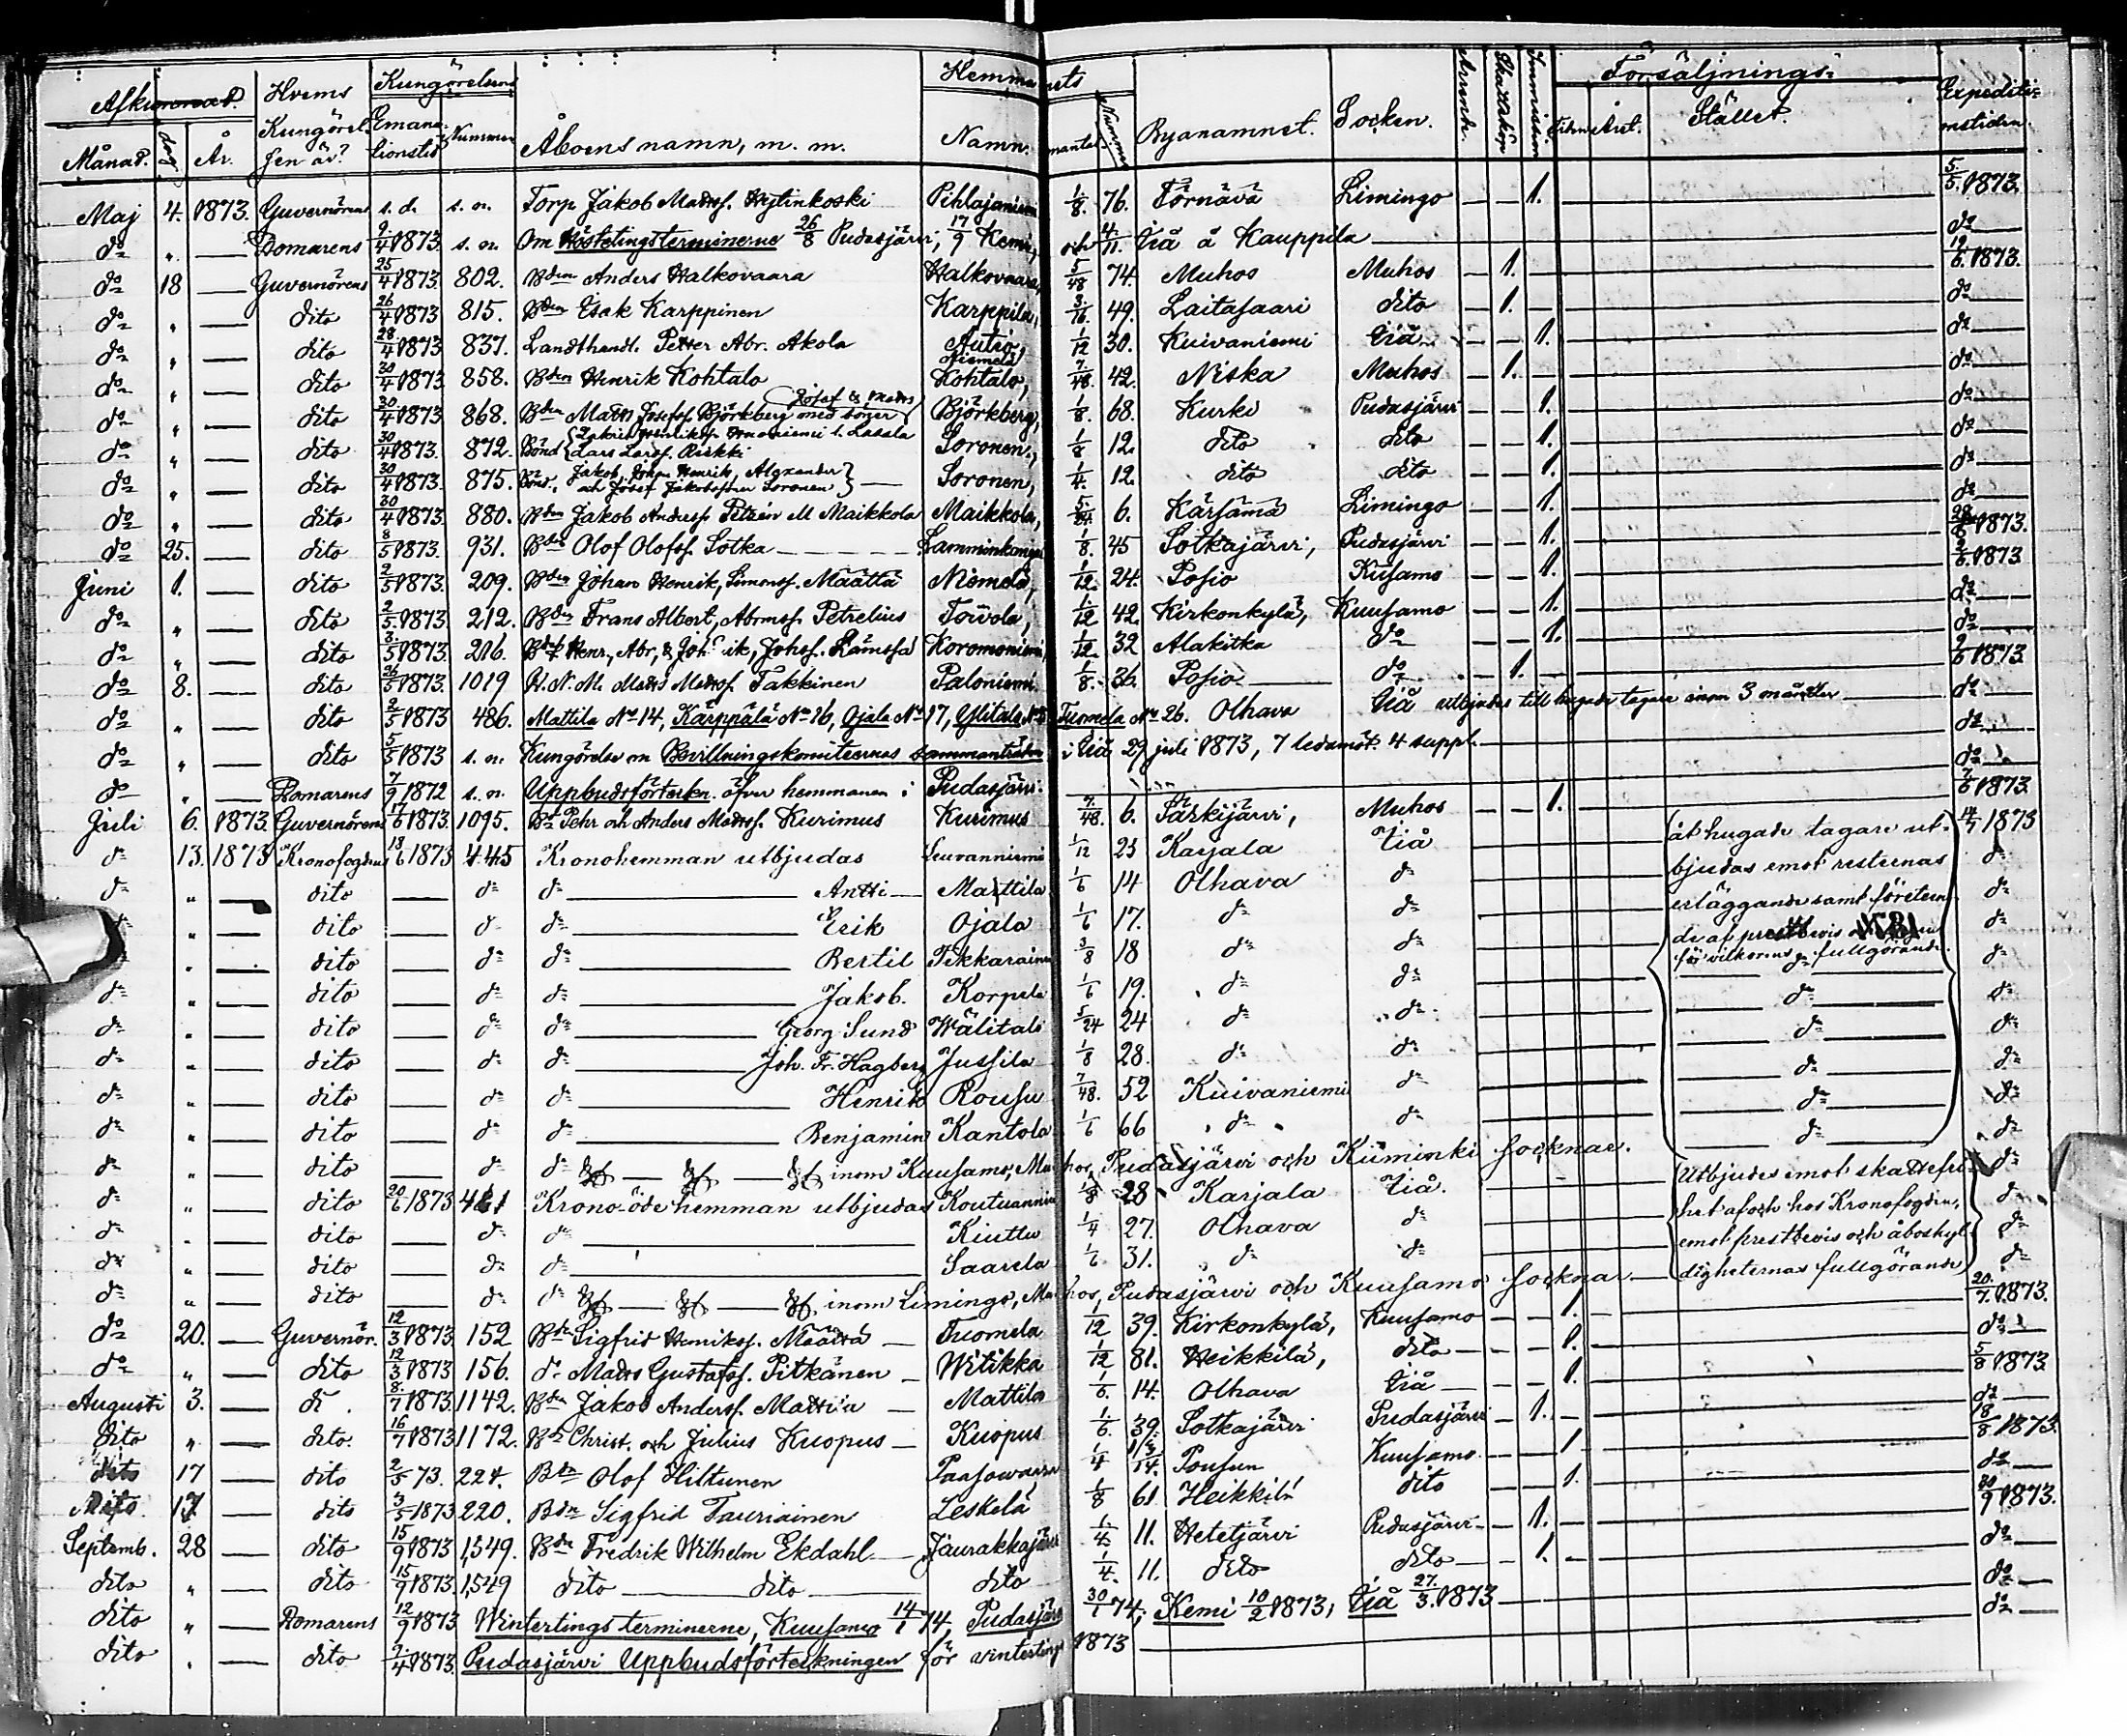 Afkunnad. Hvems Kungörelsens Hemmanets Försäljnings- Expediti-
Månad. dag År. Kungörel- Emana- Nummer Åboens namn, m. m. Namn. mantal Nummer Byanamnet. Socken. Skatteköp Immission Stället. onstiden.
sen är? tionstid
Maj 4. 1873. Guvernörens s. d. s. n. Torp Jakob Madsf. Hytinkoski Pihlajaniemi 1/8. 76. Törnävä Limingo — — 1. 5/5 1873.
do „ — Domarens 9/4 1873 s. n. Om Höstetingsterminerne 26/8 Pudasjärvi, 17/9 Kemi, och 4/11. Iiå å Kauppila do
do 18 — Guvernörens 25/4 1873 802. Bdn Anders Halkovaara Halkovaara, 5/48 74. Muhos Muhos — 1. 19/5 1873.
do „ — dito 26/4 1873 815. Bdn Esak Karppinen Karppila, 3/16 49. Laitasaari dito — 1. do
do „ — dito 28/4 1873 837. Landthandl. Petter Abr. Akola Autio, 1/12 30. Kuivaniemi Iiå — — 1. do
do „ — dito 30/4 1873 858. Bdn Henrik Kohtalo Niemelä Kohtalo, 7/48. 42. Niska Muhos — 1. do
do „ — dito 30/4 1873 868. Bdn Matts Josefsf. Björkberg med söner Josef & Matts Björkberg, 1/8. 68. Kurki Pudasjärvi — — 1. do
do „ — dito 30/4 1873. 872. Bönd Lars Larsf. Riekki Soronen, 1/8 12. dito dito — — 1. do
do „ — dito 30/4 1873. 875. Bönd. Jakob, Johan Henrik, Alexander och Josef Jakobssöner Soronen Soronen, 1/4. 12. dito dito — — 1. do
do „ — dito 30/4 1873. 880. Bdn Jakob Andersf. Petrin M Maikkola Maikkola, 6. Kärsämä Limingo — — 1. do
do 25. — dito 8/5 1873. 931. Bdn Olof Olofsf. Sotka Lamminkangas 1/8. 45 Sotkajärvi, Pudasjärvi — — 1. 1873.
Juni 1. — dito 2/5 1873. 209. Bdn Johan Henrik, Simonsf. Määttä Niemelä, 1/12. 24. Posio Kusamo — — 1. 2/6 1873
do „ — dito 2/5 1873 212. Bdn Frans Albert, Abrmsf. Petrelius Toivola, 1/12 42. Kirkonkylä, Kuusamo — — 1. do
do „ — dito 3/5 1873. 216. Henr, Abr, & Joh Eik, Johsf. Lämsä Koromoniemi, 1/12. 32 Alakitka do — — 1. do
do 8. — dito 1873. 1019 R. N. M. Matts Matsf. Takkinen Paloniemi. 1/8. 36. Posio do — 1. 9/6 1873.
do „ — dito 2/5 1873 486. Mattila No 14, Kärppälä No 16, Ojala No 17, Ylitalo Tuomela No 26. Olhava Iiå utbjudes till hugade tagare inom 3 månader do
do „ — dito 5/5 1873 s. n. Kungörelse om Bevillningskomiteernas sammanträden i Iiå 29 juli 1873, 7 ledamöt. 4 suppl. do
do „ — Domarens 7/9 1872 s. n. Uppbudsförteckn. öfver hemmanen i Pudasjärvi. do
Juli 6. 1873. Guvernörens 17/6 1873. 1095. Bd Pehr och Anders Madsf. Kurimus Kurimus 7/48. 6. Särkijärvi, Muhos — — 1. 7/6 1873.
do 13. 1873 Kronofogdens 18/6 1873 445 Kronohemman utbjudas Leuvanniemi 1/12 23 Karjala Iiå åt hugade tagare ut- 14/7 1873
do „ — dito — do do Antti Mattila 1/6 14 Olhava do bjudas emot resternas do
do „ — dito — do do Erik Ojala 1/6 17. do do erläggande samt företeen- do
do „ — dito — do do Bertil Tikkarainen 3/8 18 do do de af prestbevis do
do „ — dito — do do Jakob. Korpela 1/6 19. do do för vilkorens fullgörande. do
do „ — dito — do do Georg Sund Wälitalo 5/24 24 do do do do
do „ — dito — do do Joh. Fr. Hagberg Jussila 1/8 28. do do do do
do „ — dito — do do Henrik Rousu 7/48. 52 Kuivaniemi do do do
do „ — dito — do do Benjamin Kantola 1/6 66 do do do do
do „ — dito — do do inom Kuusamo, Muhos, Pudasjärvi och Kiiminki socknar. do
do „ — dito 20/6 1873 461 Krono-öde hemman utbjudas Koutuanniemi 1/8 28 Karjala Iiå. Utbjudes emot skattefri- do
do „ — dito — do do Kiuttu 1/4 27. Olhava do het af och hos Kronofogden, do
do „ — dito — do do Saarela 1/6 31. do do emot prestbevis och åboskyl- do
do „ — dito — do do inom Limingo, Muhos, Pudasjärvi och Kuusamo socknar digheternas fullgörande
do 20. — Guvernör. 12/3 1873 152 Bdn Sigfrid Henriksf. Määttä — Tuomela 1/12 39. Kirkonkylä, Kuusamo — — 1. 20/7 1873.
do „ — dito 12/3 1873 156. do Matts Gustafsf. Pitkänen — Witikka 1/12 81. Heikkilä, dito — — 1. do
Augusti 3. — do 8/7 1873. 1142. Bdn Jakob Andersf. Mattila — Mattila 1/6. 14. Olhava Iiå — — 1. 5/8 1873
dito „ — dito. 16/7 1873 1172. Bdr Christ. och Julius Kuopus — Kuopus 1/6. 39. Sotkajärvi Pudasjärvi — 1. do
dito 17 — dito 2/5 73. 224. Bdn Olof Hiltunen Paasowaara 1/4 14. Pousun Kuusamo — — 1 18/8 1873.
Dito. 17 — dito 3/5 1873 220. Bdn Sigfrid Tauriainen Leskelä 1/8 61 Heikkilä dito — — 1. do
Septemb. 28 — dito 15/9 1873 1,549. Bdn Fredrik Wilhelm Ekdahl Jaurakkajärvi 1/4 11. Hetetjärvi Pudasjärvi — 1. 30/9 1873.
dito „ — dito 15/9 1873. 1,549 dito dito dito 1/4. 11. dito dito — 1. do
dito „ — Domarens 12/9 1873 Wintertings terminerne, Kuusamo 14/1 74, Pudasjärvi 30/1 74, Kemi 10/2 1873, Iiå 27/3. 1873 do
dito „ — dito 9/4 1873. Pudasjärvi Uppbudsförteckningen för vintertinget 1873 do